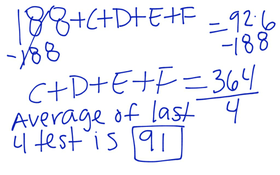 188+C+D+E+F = 92·6
-188 -188
C+D+E+F = 364/4
Average of last
4 test is 91